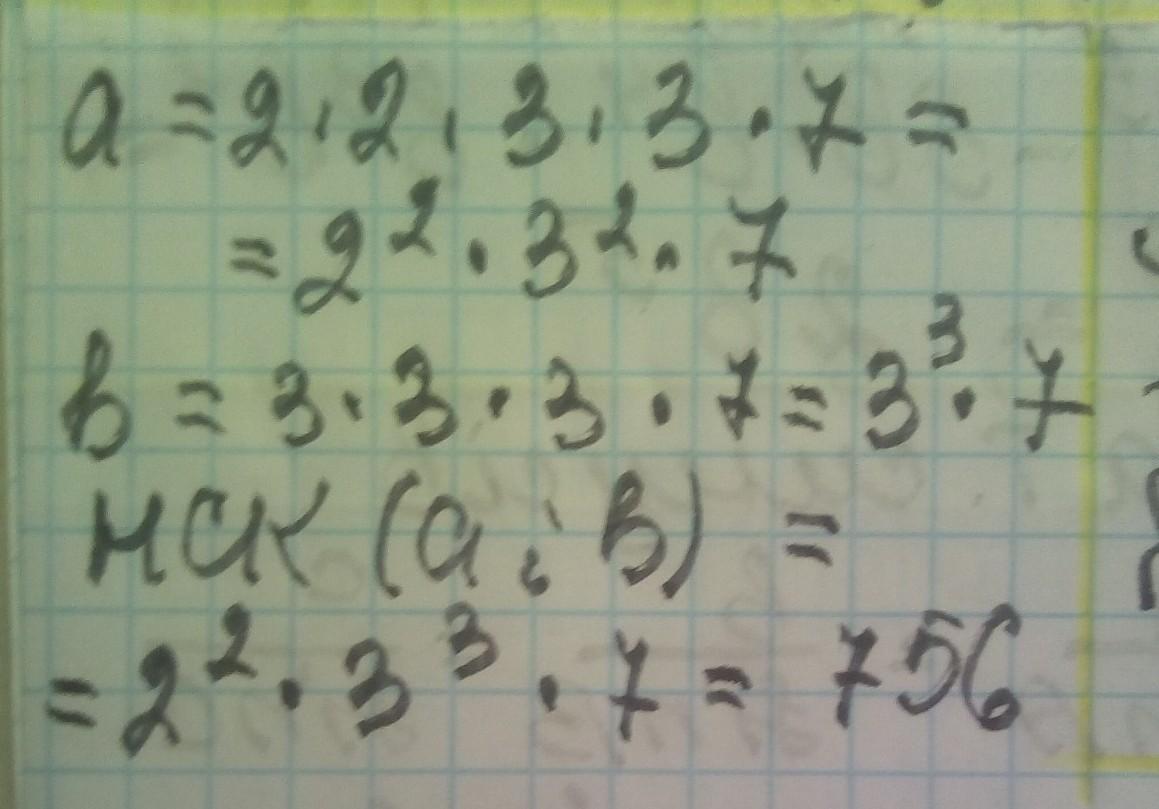 a = 2 · 2 · 3 · 3 · 7 =
= 2² · 3² · 7
в = 3 · 3 · 3 · 7 = 3³ · 7
НСК (a ; в) =
= 2² · 3³ · 7 = 756